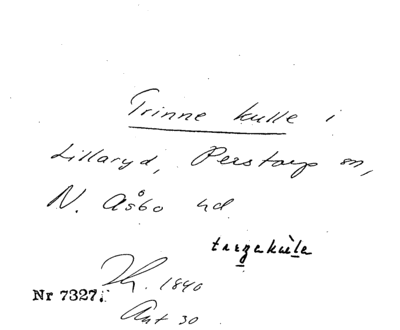 Trinne kulle i
Lillaryd, Perstorp sn,
N. Åsbo hd
Th. 1840
Nr 7327.
Ant 30